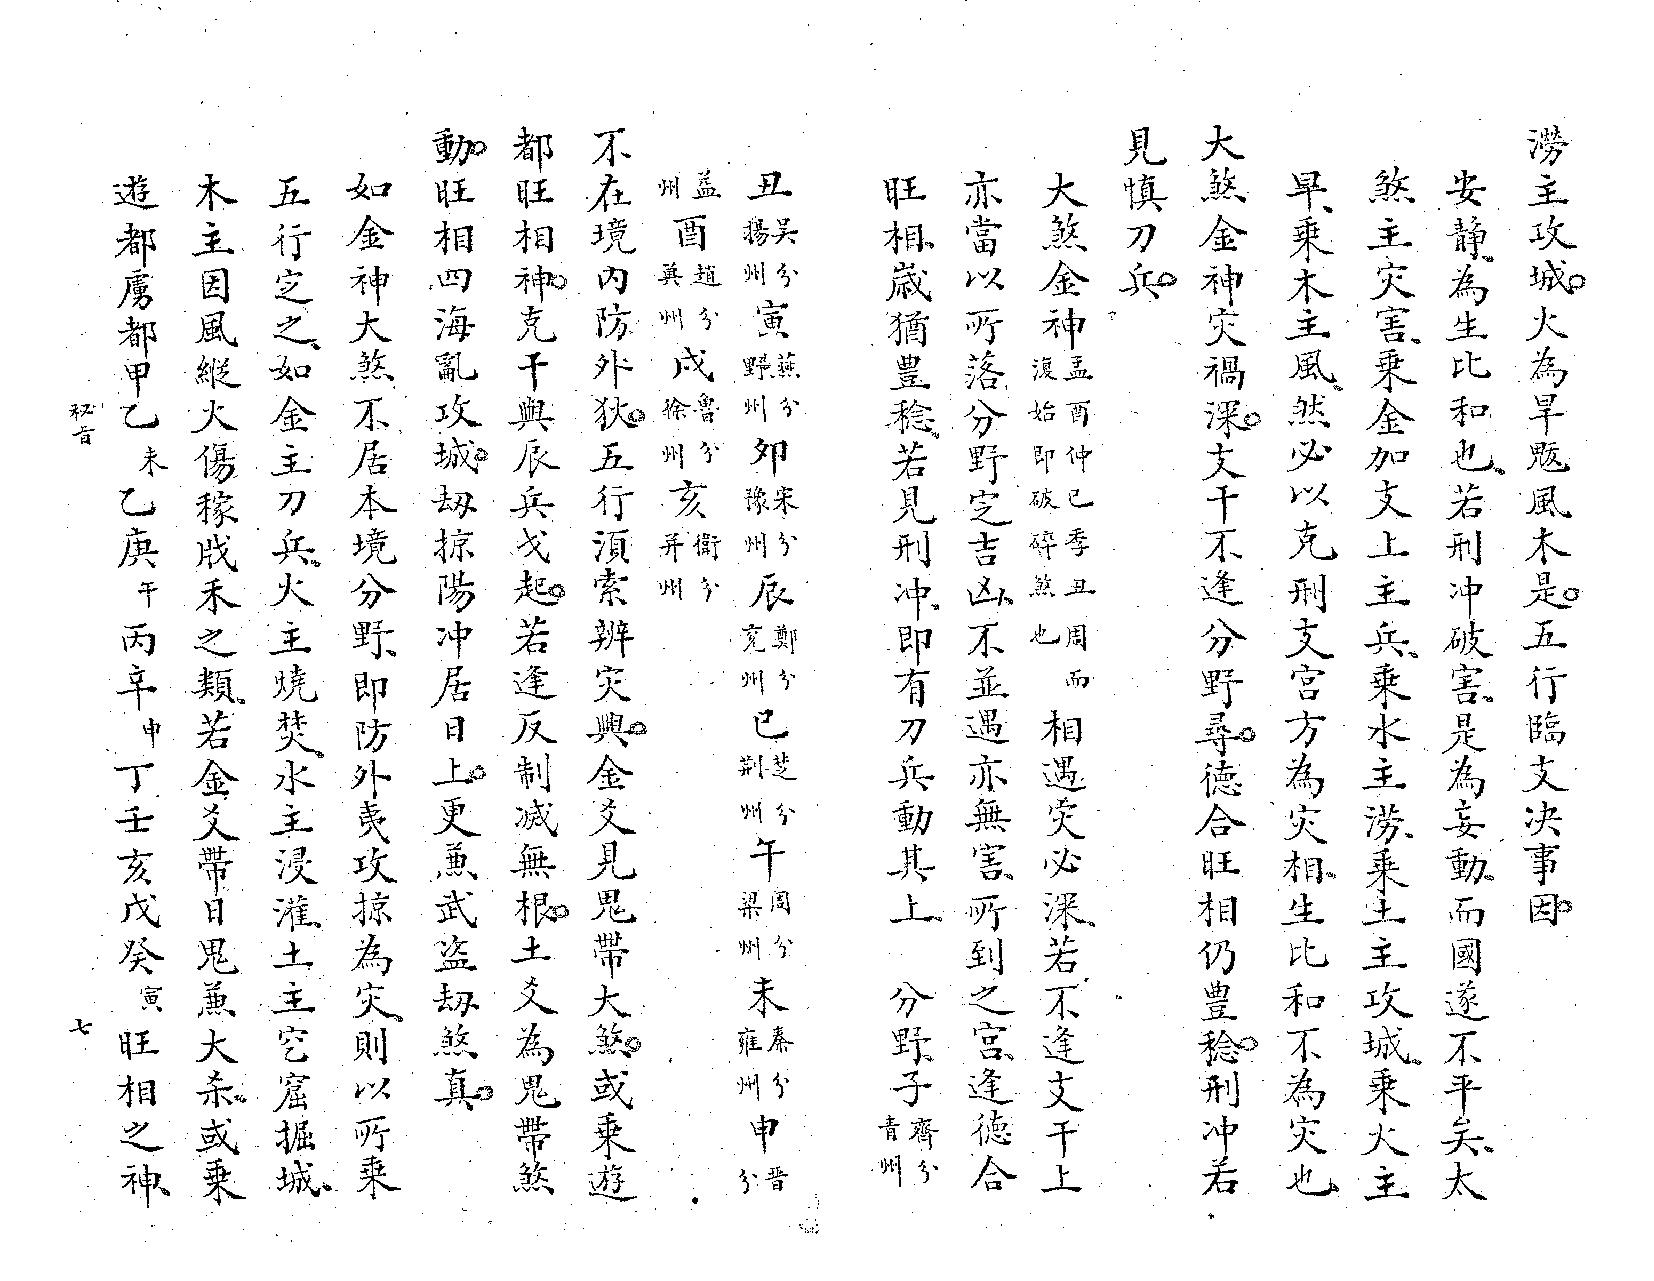 澇主攻城火為旱颰風木是五行臨支決事因
安靜為生比和也若刑冲破害是為妄動而國遂不平矣太
煞主灾害乘金加支上主兵乘水主澇乘土主攻城乘火主
旱乘木主風然必以克刑支宮方為灾相生比和不為灾也
大煞金神灾禍深支干不逢分野尋德合旺相仍豊稔刑冲若
見慎刀兵
大煞金神孟酉仲巳季丑周而復始即破碎煞也相遇灾必深若不逢支干上
亦當以所落分野定吉凶不並遇亦無害所到之宮逢德合
旺相歲猶豊稔若見刑冲即有刀兵動其上 分野子齊分青州
丑吳分揚州寅燕分野州夘宋分豫州辰鄭分兗州巳楚分荆州午周分梁州未秦分雍州申晋分
益州酉趙分冀州戌魯分徐州亥衛分并州
不在境內防外狄五行湏索辨灾興金爻見鬼帶大煞或乘遊
都旺相神克干與辰兵戈起若逢反制滅無根土爻為鬼帶煞
動旺相四海亂攻城劫掠陽冲居日上更蒹武盗劫煞真
如金神大煞不居本境分野即防外夷攻掠為灾則以所乘
五行定之如金主刀兵火主燒焚水主浸灌土主穵窟掘城
木主因風縱火傷稼戕禾之類若金爻帶日鬼蒹大杀或乘
遊都虜都甲乙未乙庚午丙辛申丁壬亥戊癸寅旺相之神
秘旨
七